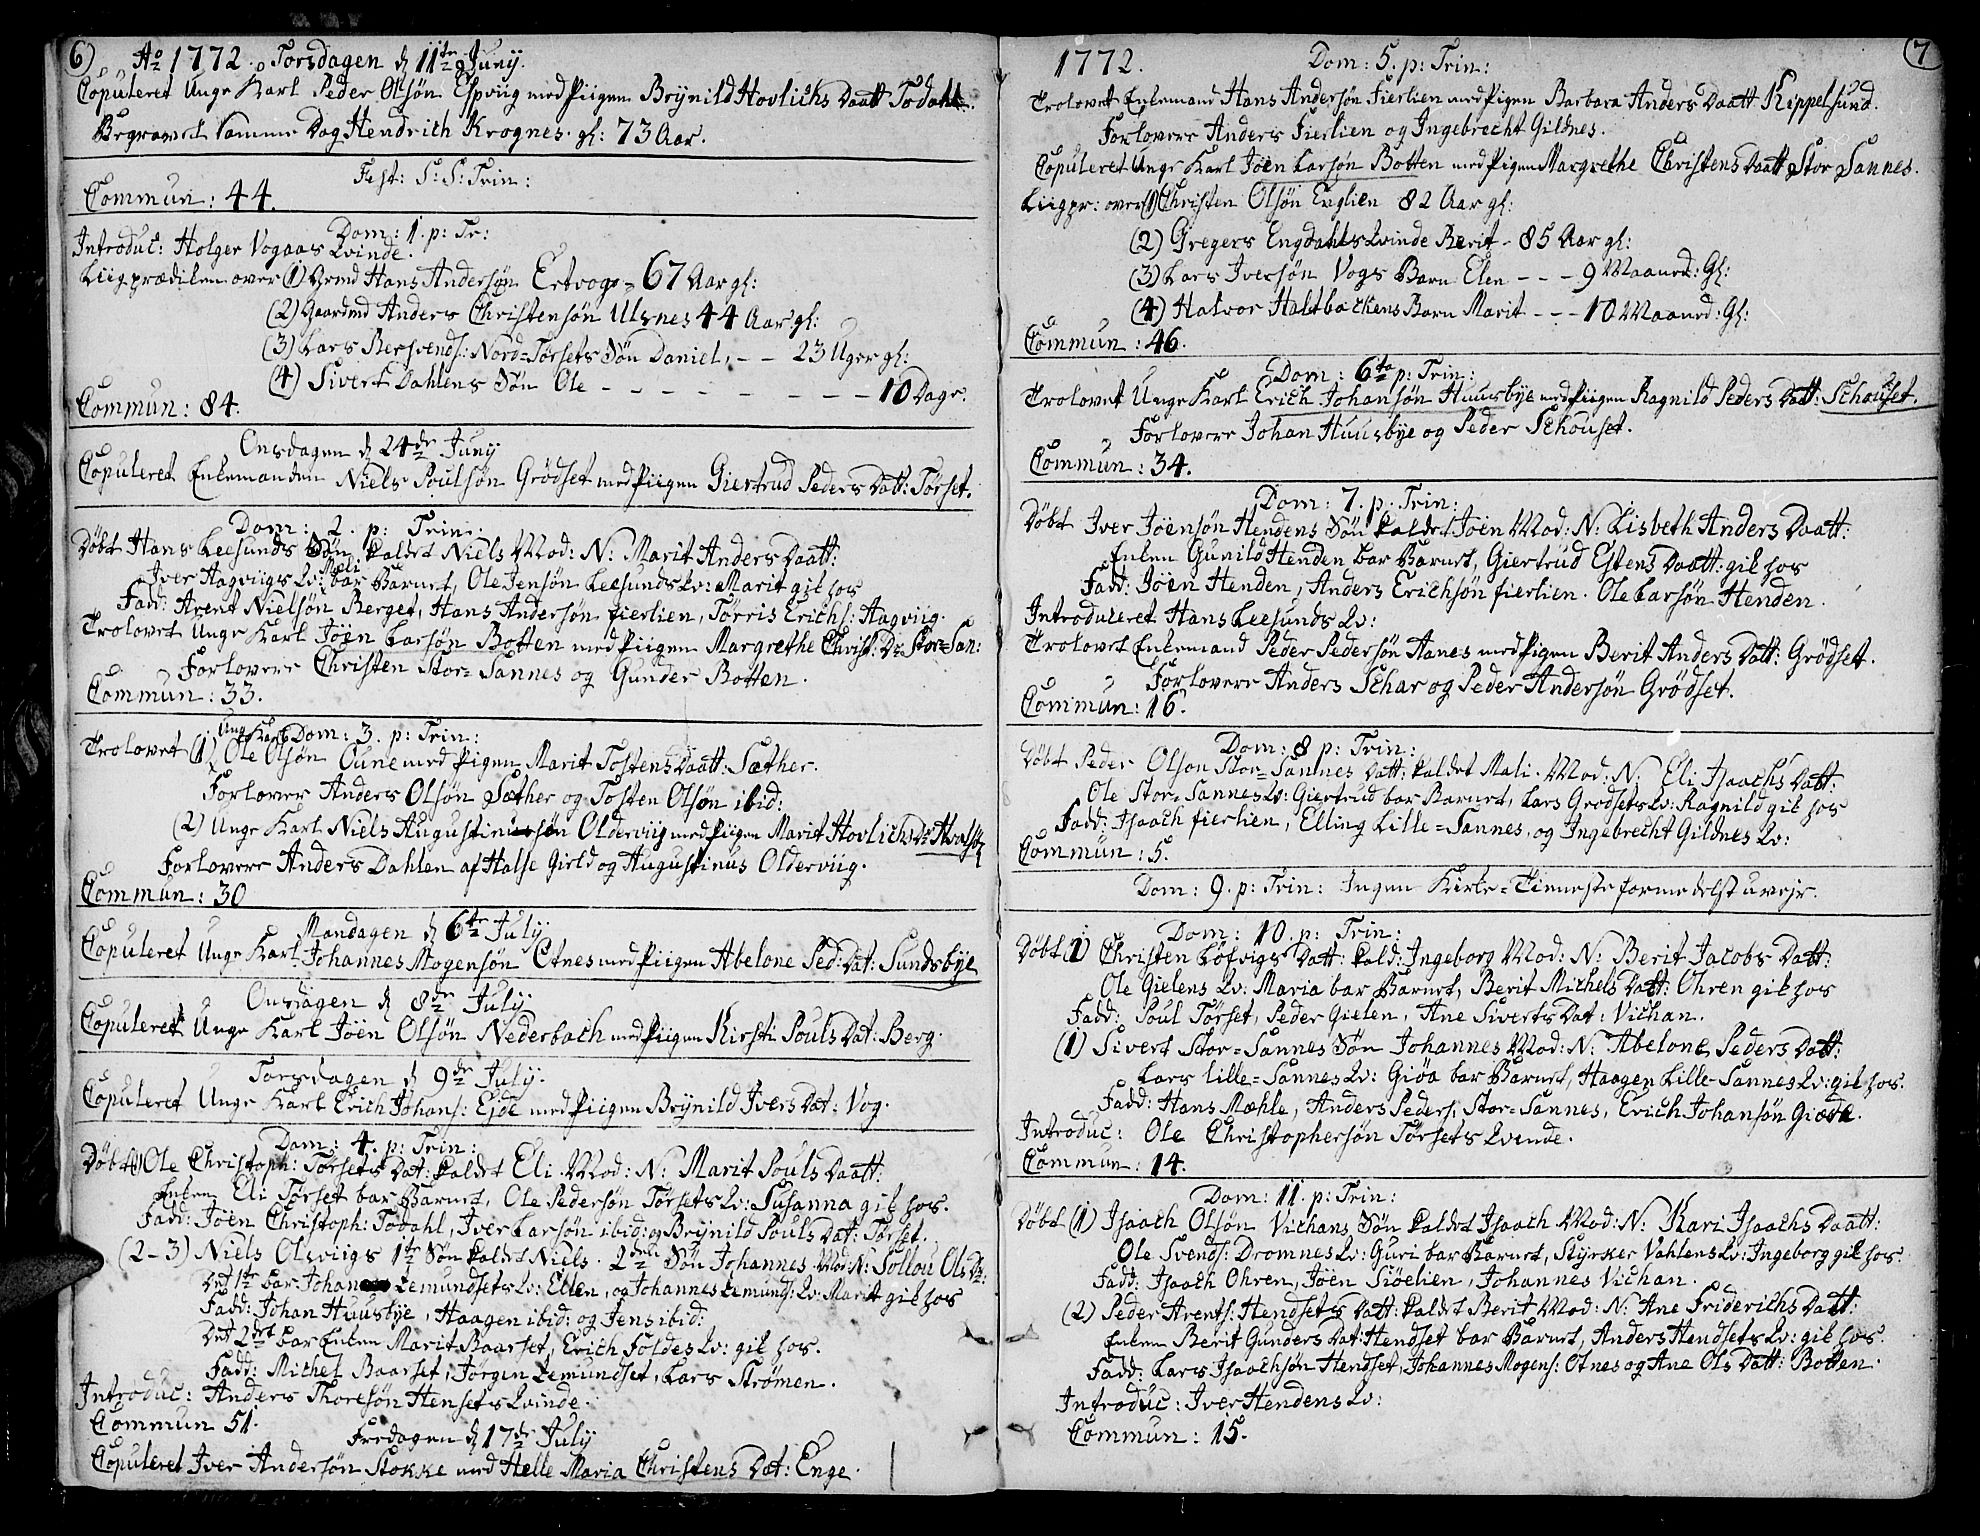 6)
Ao 1772. Torsdagen d 11te Juny.
Copuleret Unge Karl Peder Olsøn Espviig med Piigen Brÿnild Hovlichs Daatt Todahl.
Begravet samme Dag Hendrich Krognes. gl: 73 Aar.
Fest: S: S: Trin:
Commun: 44.
Dom: 1. p: Tr:
Introduc: Holger Vogaas Qvinde.
Liigprædiken over (1) Hans Andersøn Ertvog 67 Aar gl:
(2) Gaardmd Anders Christensøn Ulsnes 44 Aar gl:
(3) Lars Bersvends: Nord=Tørsets Søn Daniel, - - 23 Uger gl:
(4) Sivert Dahlens Søn Ole - - - - - - - 10 Dage.
Commun: 84.
Onsdagen d 24de Juny
Copuleret Enkemanden Niels Poulsøn Grødset med Piigen Giertrud Peders Datt: Tørset.
Dom: 2. p: Trin:
Døbt Hans Leesunds Søn kaldet Niels Mod: N: Marit Anders Daatt:
Iver Hagviigs Qv: Mali bar Barnet, Ole Jensøn Leesunds Qv: Marit gik hos
Fadd: Arent Nielsøn Berget, Hans Andersøn fierlien, Tørris Erichs: Hagviig.
Trolovet Unge Karl Jöen Larsøn Botten med Piigen Margrethe Christ: Dr Stor=San:
Forlovere Christen Stor=Sannes og Gunder Botten.
Commun: 33.
Dom: 3. p: Trin:
Trolovet (1) Unge Karl Ole Olsøn Oune med Pigen Marit Tostens Daatt: Sæther.
Forlovere Anders Olsøn Sæther og Tosten Olsøn ibid:
(2) Unge Karl Niels Augustinusøn Olderviig med Piigen Marit Hovlichs Dr
Forlovere Anders Dahlen af Halse Gield og Augustinus Olderviig.
Commun: 30
Mandagen d 6te July
Copuleret Unge Karl Johannes Mogensøn Otnes med Piigen Abelone Ped: Dat: Sundsbye
Onsdagen d 8de July
Copuleret Unge Karl Jöen Olsøn Nederbach med Piigen Kirsti Pouls Dat: Berg.
Torsdagen d 9de July.
Copuleret Unge Karl Erich Johans: Eide med Piigen Brÿnild Ivers Dat: Vog.
Dom: 4. p: Trin:
Døbt (1) Ole Christoph: Tørsets Dat: kaldet Eli. Mod: N: Marit Pouls Daatt:
Enken Eli Tørset bar Barnet, Ole Pedersøn Tørsets Qv: Susanna gik hos.
Fadd: Jöen Christoph: Todahl, Iver Larsøn ibid: og Brÿnild Pouls Dat: Tørset.
(2-3) Niels Olsviigs 1te Søn kaldet Niels. 2den Søn Johannes Mod: N: Sollou Ols Dr:
Det 1te bar Johan Lemundsets Qv: Ellen, og Johannes Lemunds: Qv: Marit gik hos
Fadd: Johan Huusbye, Haagen ibid: og Jens ibid:
Det 2det bar Enken Marit Baarset, Erich Foldes Qv: gik hos.
Fadd: Michel Baarset, Jørgen Lemundset, Lars Strømen.
Introduc: Anders Thoresøn Hensets Qvinde.
Commun 51.
Fredagen d 17de July
Copuleret Iver Andersøn Stokke med Helle Maria Christens Dat: Enge.
7
1772.
Dom: 5. p: Trin:
Trolovet Enkemand Hans Andersøn Fierlien med Pigen Barbara Anders Daatt Kippelsund.
Forlovere Anders Fierlien og Ingebrecht Gildnes.
Copuleret Unge Karl Jöen Larsøn Botten med Pigen Margrethe Christens Daatt Stor Sannes.
Liigpr: over (1) Christen Olsøn Englien 82 Aar gl:
(2) Gregers Engdahls Qvinde Berit - 85 Aar gl:
(3) Lars Iversøn Vogs Barn Elen - - - 9 Maaned: Gl:
(4) Halvor Haltbackens Barn Marit - - - 10 Maaned: Gl:
Commun: 46.
Dom: 6te p: Trin:
Trolovet Unge Karl Erich Johansøn Huusbye med Piigen Ragnild Peders Datt: Schouset.
Forlovere Johan Huusbye og Peder Schouset.
Commun: 34.
Dom: 7. p: Trin:
Døbt Iver Jöensøn Hendens Søn kaldet Jöen Mod: N: Lisbeth Anders Daatt:
Enken Gunild Henden bar Barnet, Giertrud Estens Daatt: gik hos
Fadd: Jöen Henden, Anders Erichsøn fierlien. Ole Larsøn Henden.
Introduceret Hans Leesunds Qv:
Trolovet Enkemand Peder Pedersøn Aanes med Pigen Berit Anders Datt: Grødset.
Forlovere Anders Schar og Peder Andersøn Grødset.
Commun: 16.
Dom: 8 p: Trin:
Døbt Peder Olsøn Stor=Sannes Datt: kaldet Mali. Mod: N: Eli Isaachs Datt:
Ole Stor=Sannes Qv: Giertrud bar Barnet, Lars Grødsets Qv: Ragnild gik hos
Fadd: Isaach fierlien, Elling Lille=Sannes, og Ingebrecht Gildnes Qv:
Commun: 5.
Dom: 9. p: Trin: Ingen Kirke=Tieneste formedelst uvejr.
Dom: 10. p: Trin:
Døbt (1) Christen Løfvigs Datt: kald: Ingeborg Mod: N: Berit Jacobs Datt:
Ole Gielens Qv: Maria bar Barnet, Berit Michels Datt: Ohren gik hos
Fadd: Poul Tørset, Peder Gielen, Ane Siverts Dat: Vichan.
(1) Sivert Stor=Sannes Søn Johannes Mod: N: Abelone Peders Datt:
Lars Lille=Sannes Qv: Giøa bar Barnet, Haagen Lille-Sannes Qv: gik hos.
Fadd: Hans Mæhle, Anders Peders: Stor=Sannes, Erich Johansøn
Introduc: Ole Christophersøn Tørsets Qvinde.
Commun: 14.
Dom: 11. p: Trin:
Døbt (1) Isaach Olsøn Vichans Søn kaldet Isaach Mod: N: Kari Isaachs Daatt:
Ole Svends: Dromnes Qv: Guri bar Barnet, Styrker Vahlens Qv: Ingeborg gik hos.
Fadd: Isaach Ohren, Jöen Siöelien, Johannes Vichan.
(2) Peder Arents: Hendsets Datt: kaldet Berit Mod: N: Ane Friderichs Datt:
Enken Berit Gunders Dat: Hendset bar Barnet, Anders Hendsets Qv: gik hos.
Fadd: Lars Isaachsøn Hendset, Johannes Mogens: Otnes og Ane Ols Datt: Botten.
Introduc: Iver Hendens Qv:
Commun: 15.